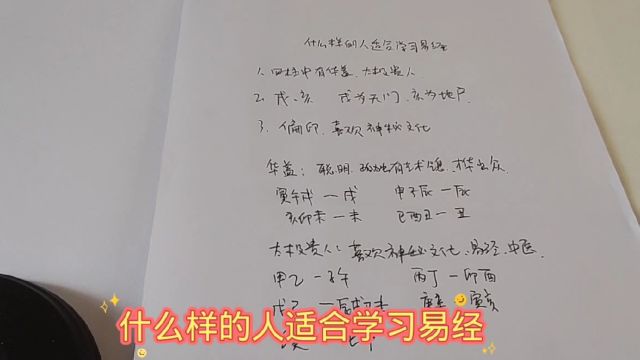 什么样的人适合学习易经
1. 四柱中有华盖、太极贵人
2. 戌、亥 戌为天门、亥为地户
3. 偏印、喜欢神秘文化
华盖：聪明、孤独有艺术 才华出众
寅午戌一戌 申子辰一辰
亥卯未一未 巳酉丑一丑
太极贵人：喜欢神秘文化、易经、中医、
甲乙一子午 丙丁一卯酉
戊己一辰戌丑未 庚辛 寅亥
什么样的人适合学习易经